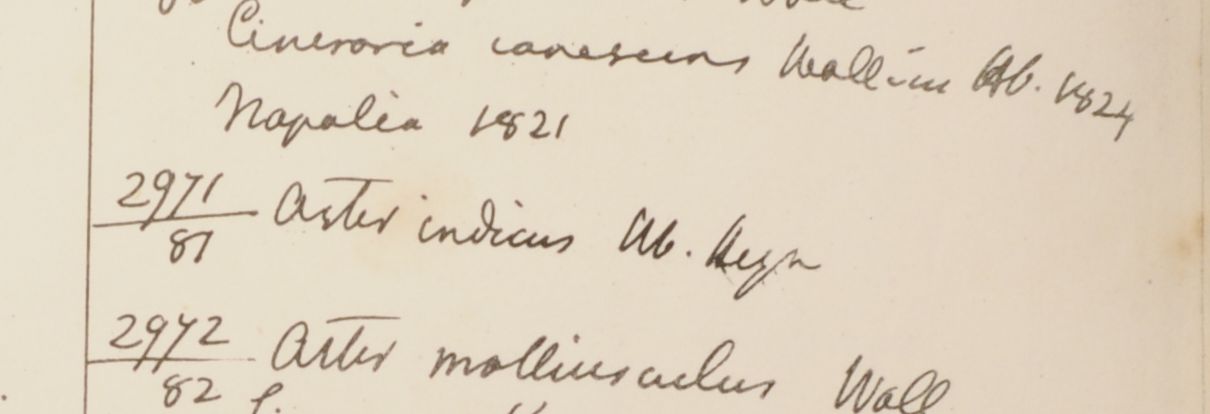 Cineraria canescens Wallich Hb. 1824
Napalia 1821
2971
81 Aster indicus Hb. Heyn
2972
82 Aster molliusculus Wall